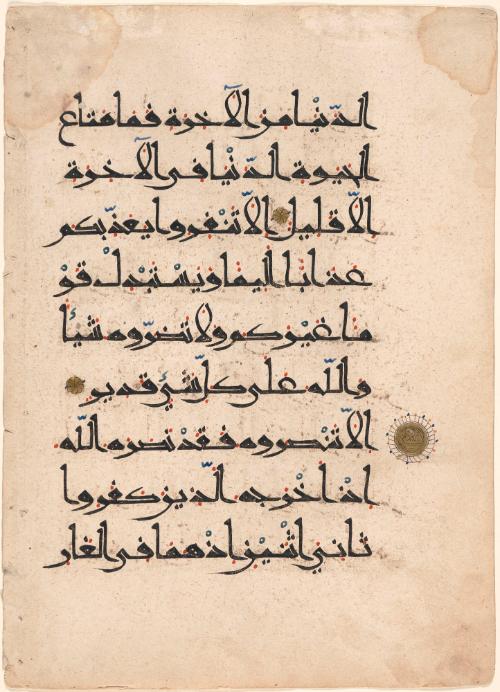 الدّنْيا من الآخرة فما متاع
الحيوة الدّنْيا فى الآخرة
الّا قليل الّا تنْفروا يعذّبكم
عذابا اليما ويسْتبْدلْ قوْ
ما غيْركم ولا تضرّوه شيْئا
والله على كلّ شىْء قدير
الّا تنْصروه فقدْ نصره الله
اذْ اخْرجه الّذين كفروا
ثانى اثْنيْن اذْ هما فى الغار